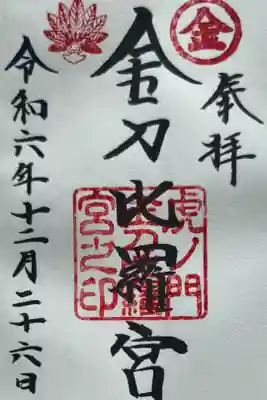 奉拝
金
金刀比羅宮
虎ノ門
金刀比羅
宮之印
令和六年十二月二十六日